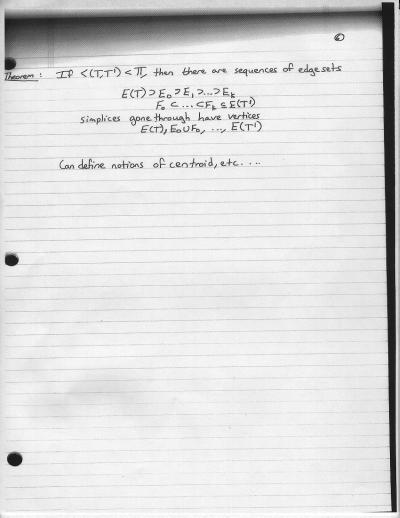 6
Theorem: If <(T,T') < π, then there are sequences of edge sets
E(T) ⊃ E₀ ⊃ E₁ ⊃ ... ⊃ Eₖ
F₀ ⊂ ... ⊂ Fₖ ⊆ E(T')
simplices gone through have vertices
E(T), E₀∪F₀, ..., E(T')
Can define notions of centroid, etc....